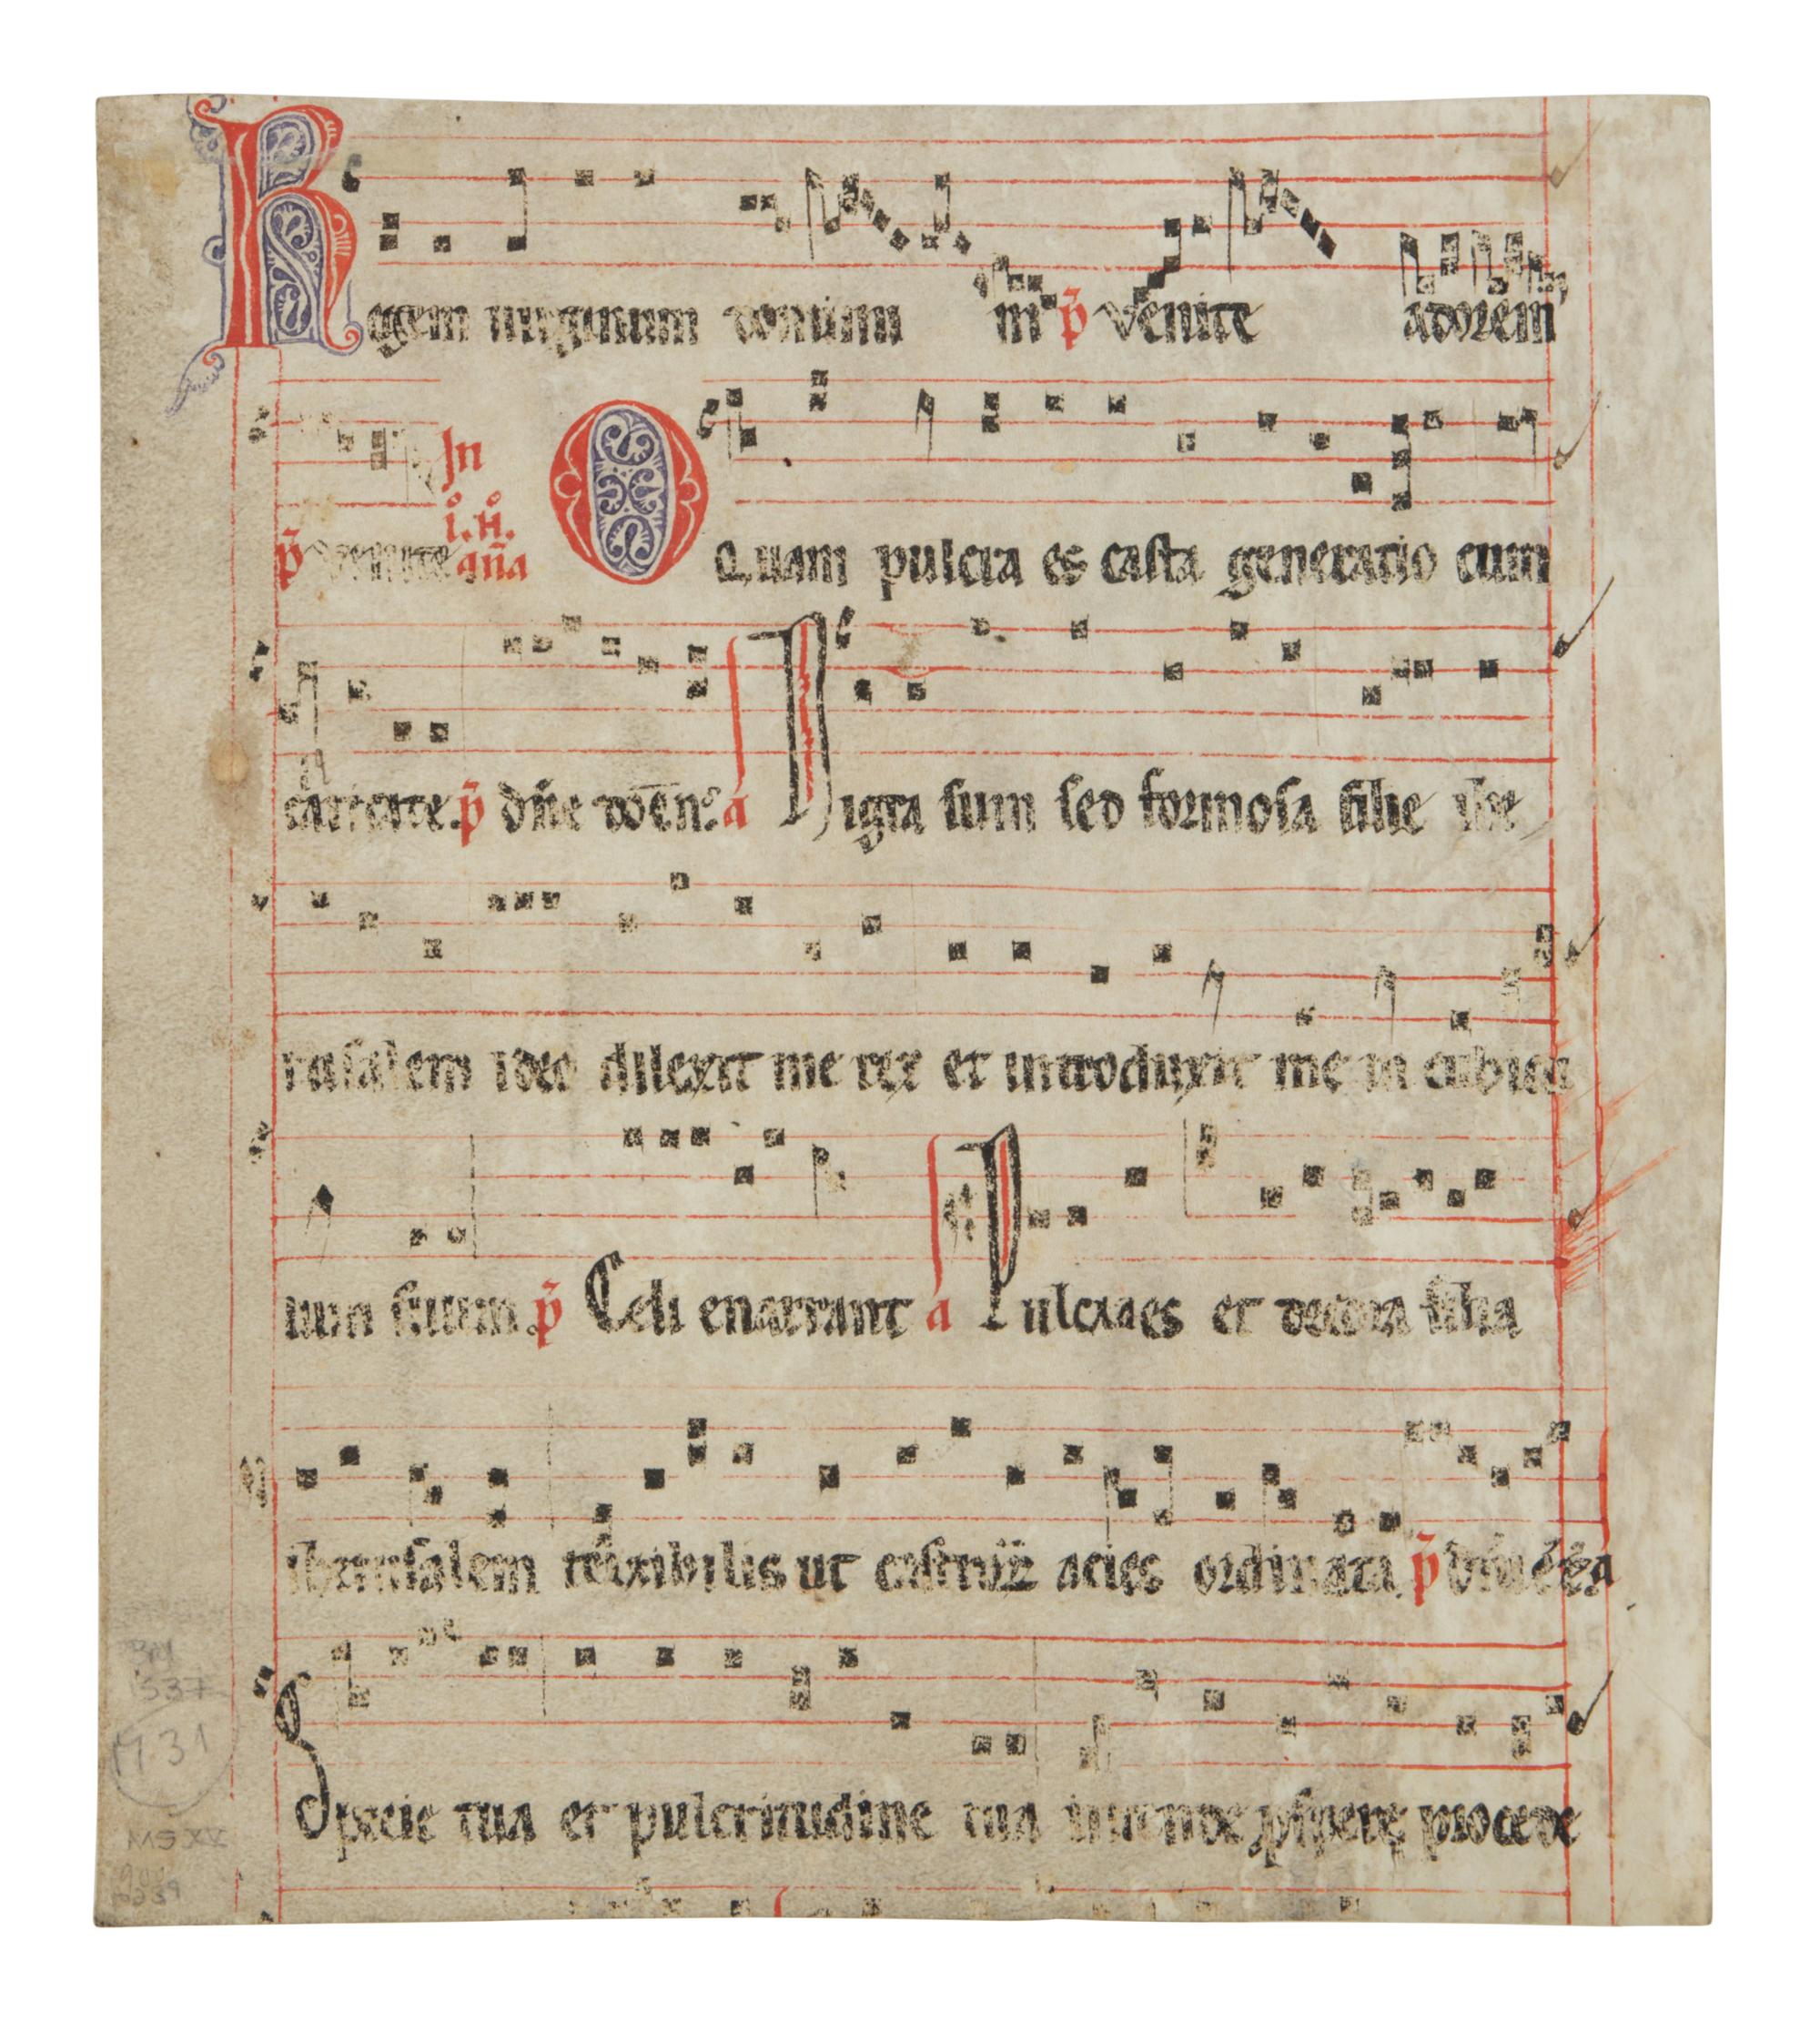 Regem uirginum dominum p̄ venite adorem̄
In
i. n̊.
p̄ venite aña O Quam pulcra es casta generatio cum
caritate. p̄ dn̄e dom̄ n̄r a Nigra sum sed formosa filie ihe
rusalem ideo dilexit me rex et introduxit me in cubicu
lum suum. p̄ Celi enarrant a Pulcra es et decora filia
iherusalem terribilis ut castroꝝ acies ordinata. p̄
Specie tua et pulcritudine tua intende ꝓspere procede
M. 31
MS XV